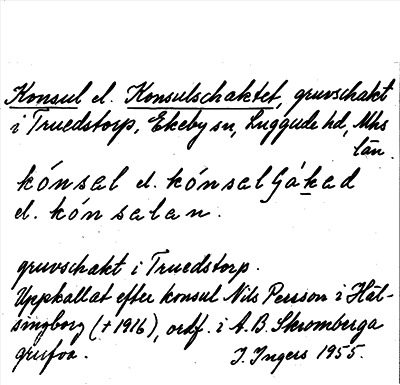 Konsul el. Konsulschaktet, gruvschakt
i Truedstorp, Ekeby sn, Luggude hd, Mhs
län.
kónsal el. kónsalʃákad
el. kónsalan.
gruvschakt i Truedstorp.
Uppkallat efter konsul Nils Persson i Häl-
singborg (+1916), ordf. i A.B. Skromberga
gruvor. J. Ingers 1955.